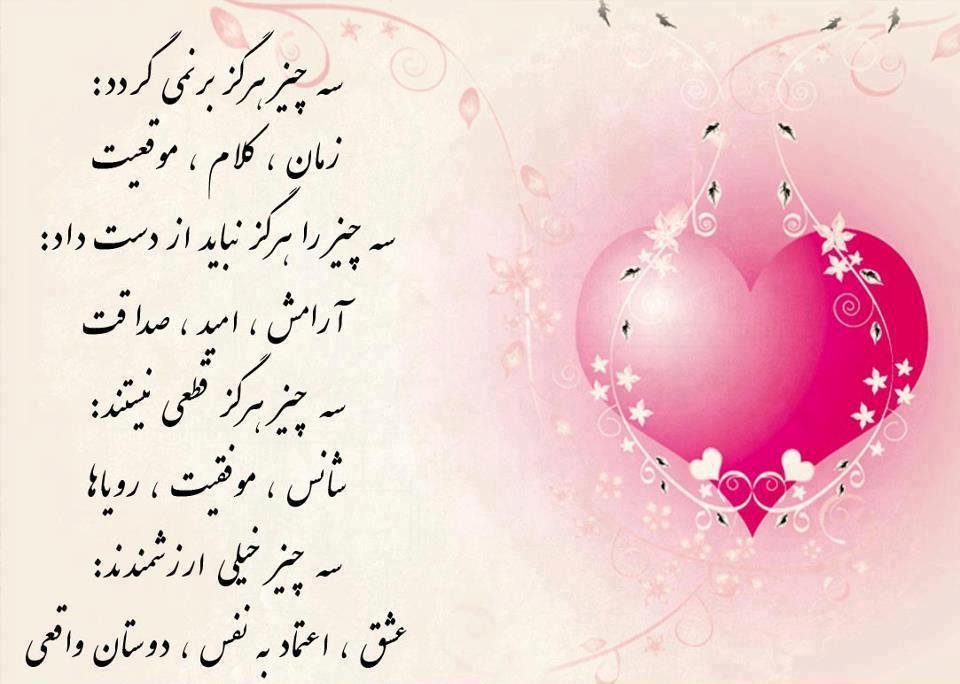 سه چیز هرگز بر نمی گردد:
زمان ، کلام ، موقعیت
سه چیز را هرگز نباید از دست داد:
آرامش ، امید ، صداقت
سه چیز هرگز قطعی نیستند:
شانس ، موفقیت ، رویاها
سه چیز خیلی ارزشمندند:
عشق ، اعتماد به نفس ، دوستان واقعی